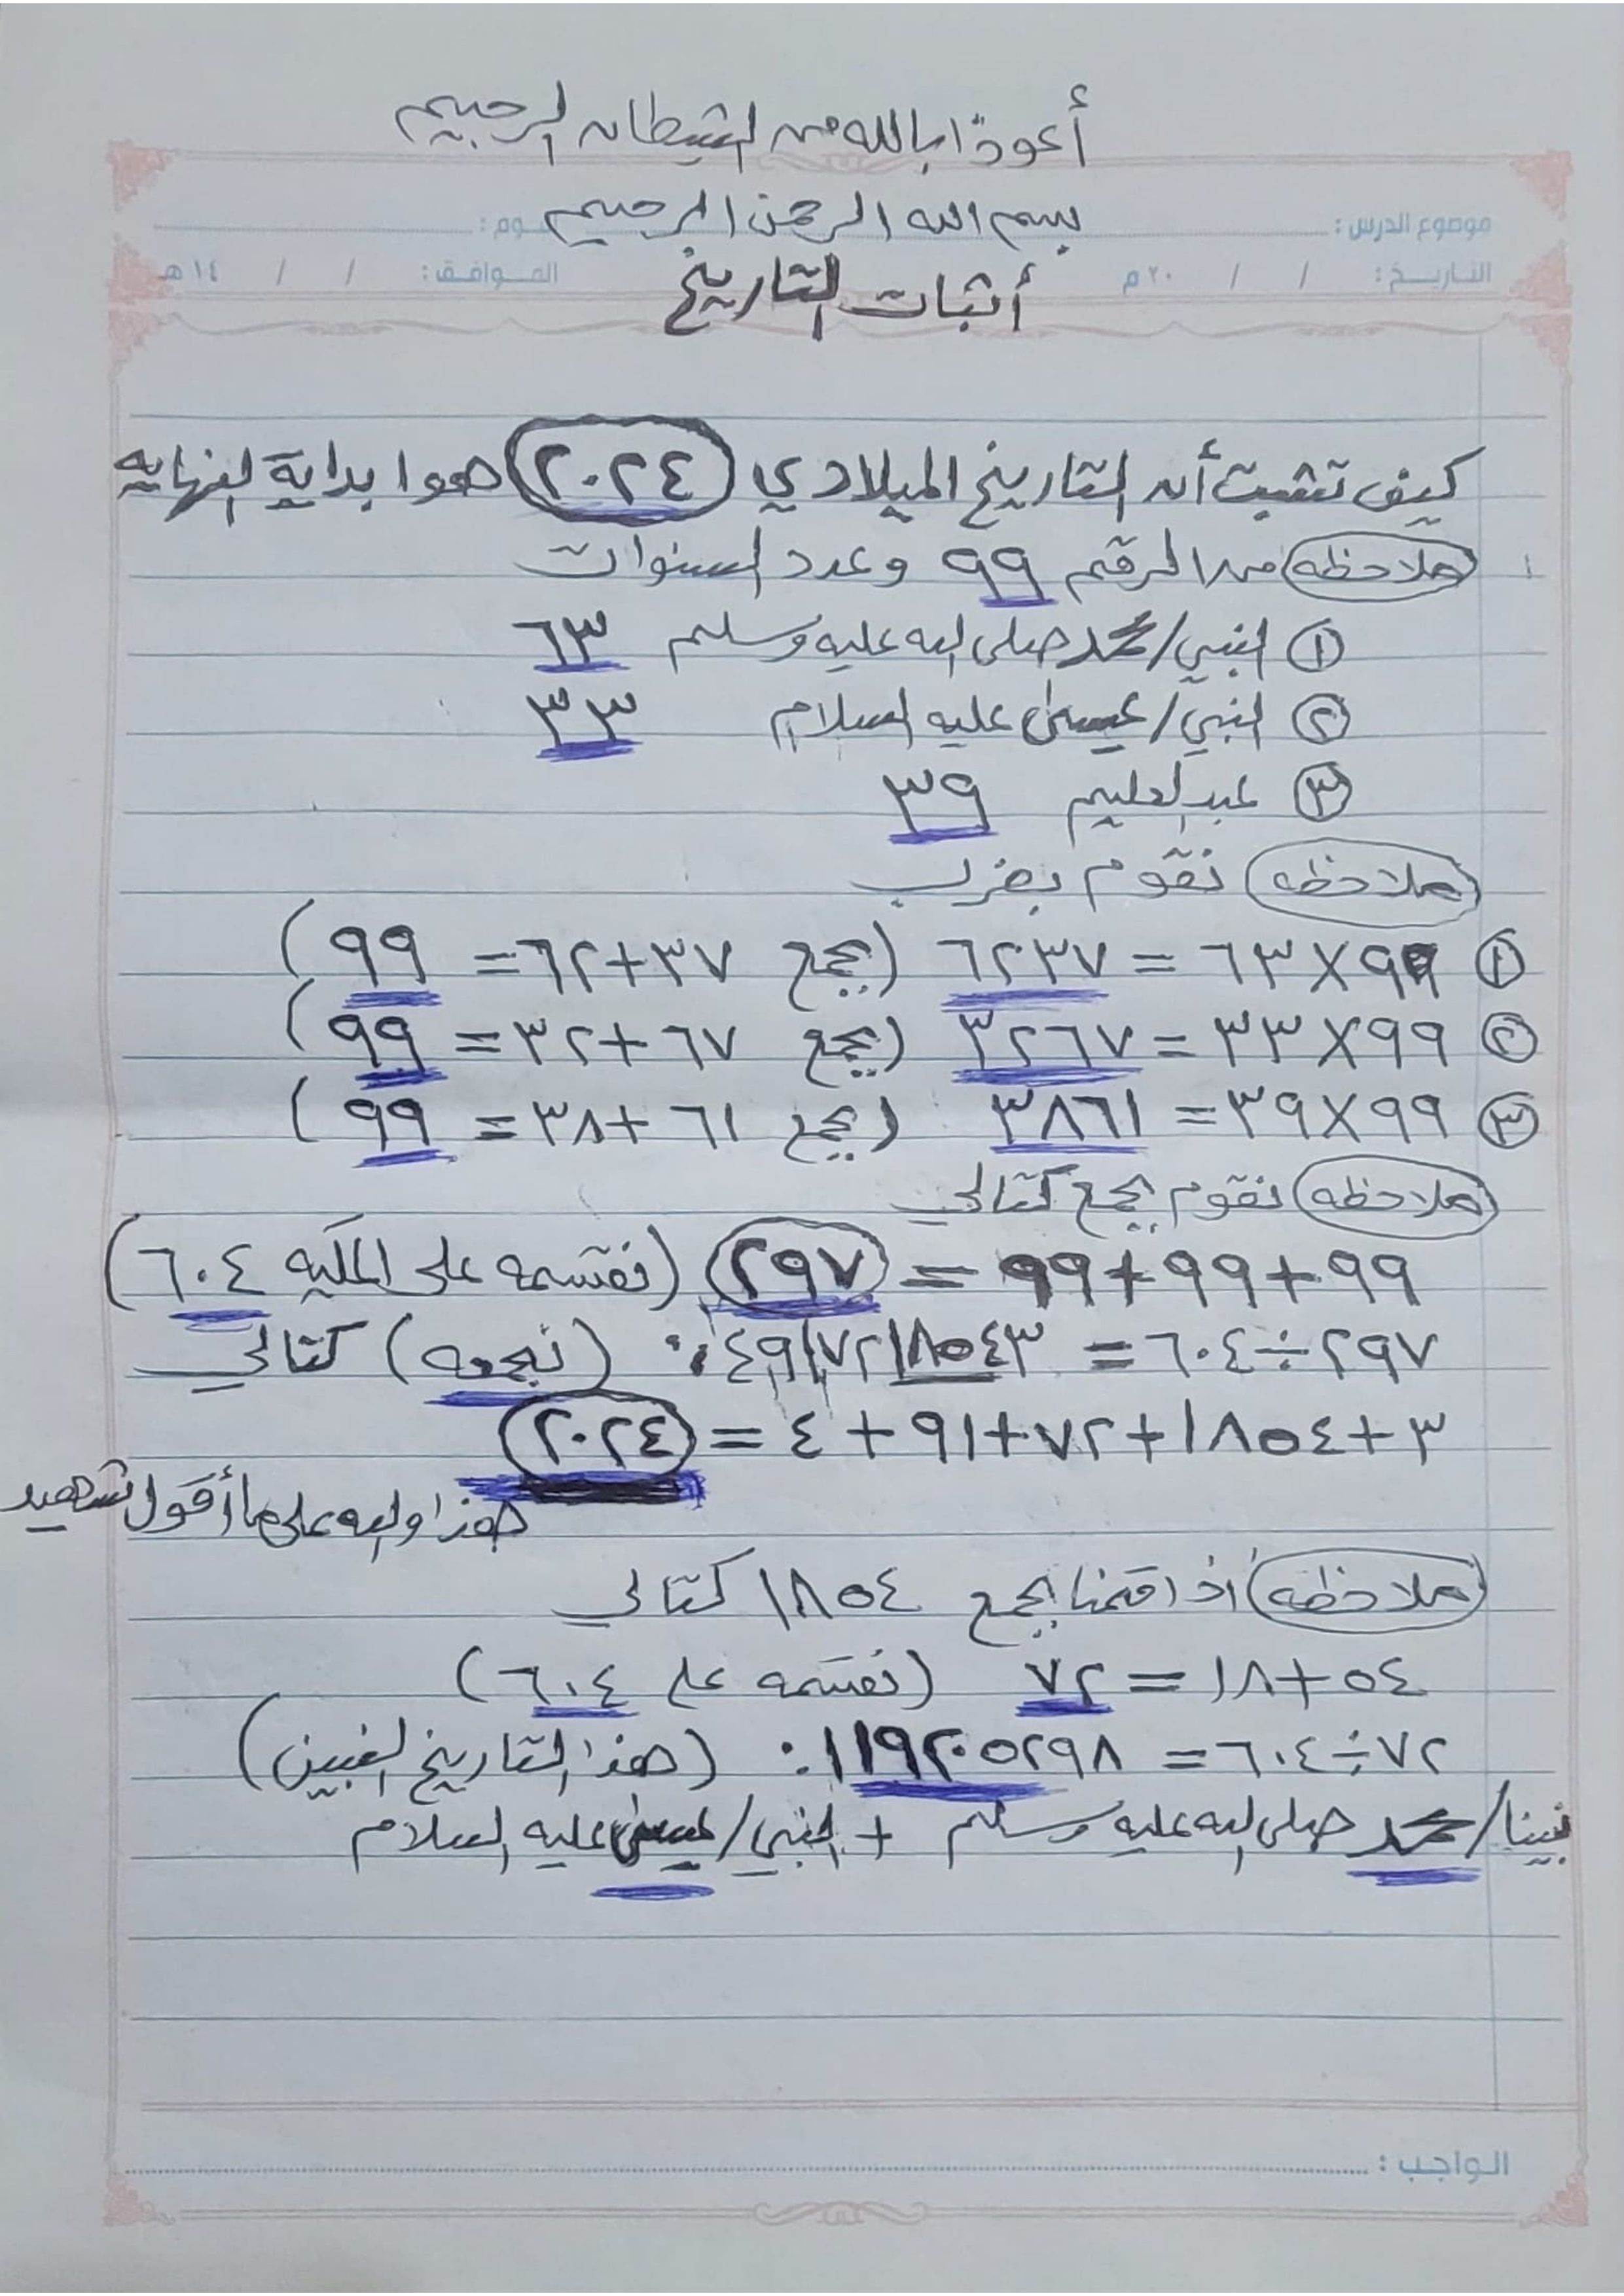 أعوذا بالله من الشيطان الرجيم
بسم الله الرحمن الرحيم
موضوع الدرس: يوم:
التاريخ: / / ٢٠م الموافق: / / ١٤هـ
أثبات التاريخ
كيف تثبت أن التاريخ الميلادي (٢٠٢٤) هوا بداية النهايه
ملاحظه من الرقم ٩٩ وعدد السنوات
١ النبي/محمد صلى الله عليه وسلم ٦٣
٢ النبي/عيسى عليه السلام ٣٣
٣ عبدالعليم ٣٩
ملاحظه نقوم بضرب
١ ٩٩×٦٣ = ٦٢٣٧ (بجمع ٣٧+٦٢= ٩٩)
٢ ٩٩×٣٣ = ٣٢٦٧ (بجمع ٦٧+٣٢= ٩٩)
٣ ٩٩×٣٩ = ٣٨٦١ (بجمع ٦١+٣٨= ٩٩)
ملاحظه نقوم بجمع كتالي
٩٩+٩٩+٩٩ = ٢٩٧ (نقسمه على المكيه ٦٠٤)
٢٩٧÷٦٠٤ = ٠.٤٩١٧٢١٨٥٤٣ (نجمعه) كتالي
٣+١٨٥٤+٧٢+٩١+٤ = ٢٠٢٤
هذا والله على ما أقول شهيد
ملاحظه اذا قمنا بجمع ١٨٥٤ كتالي
٥٤+١٨ = ٧٢ (نقسمه على ٦٠٤)
٧٢÷٦٠٤ = ٠.١١٩٢٠٥٢٩٨ (هذا التاريخ لنبيين)
نبينا/محمد صلى الله عليه وسلم + النبي/عيسى عليه السلام
الواجب: